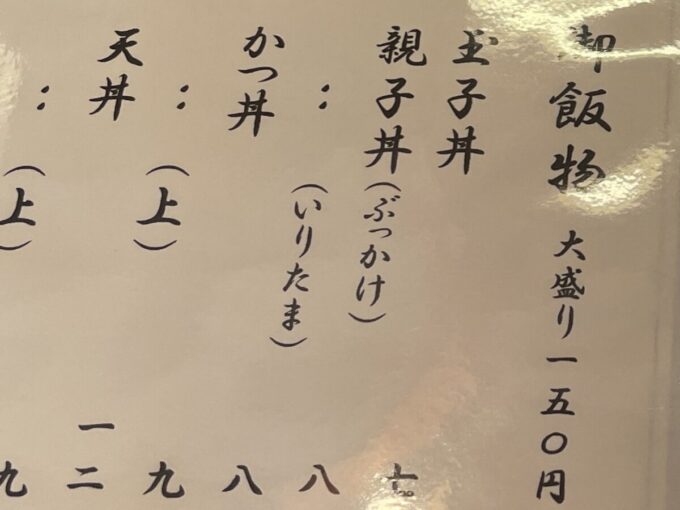 御飯物 大盛り一五〇円
玉子丼 七
親子丼(ぶっかけ) 八
: (いりたま) 八
かつ丼 九
: (上) 一二
天丼 九
: (上)